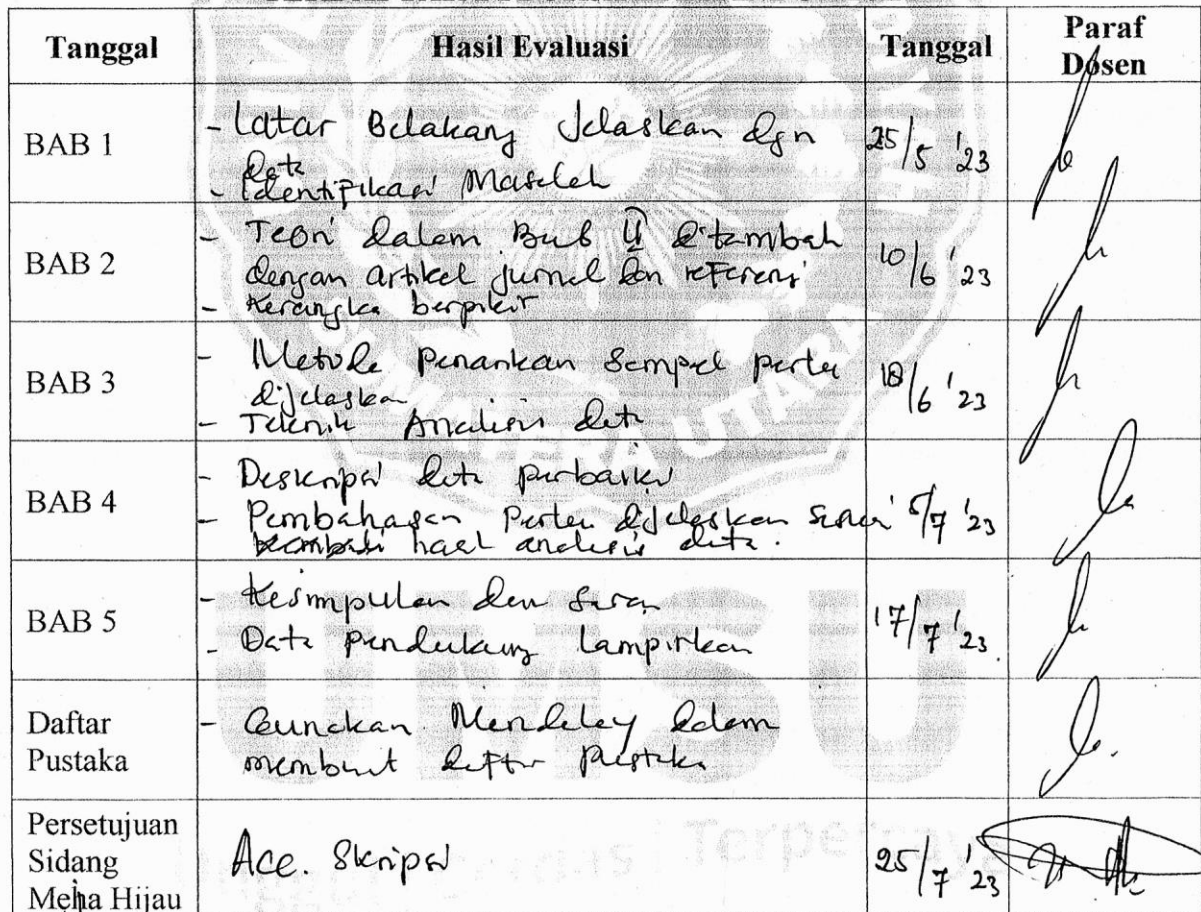 Tanggal Hasil Evaluasi Tanggal Paraf Dosen
BAB 1
- Latar Belakang Jelaskan dgn
data
- Identifikasi Masalah
25/5 '23
BAB 2
- Teori dalam Bab II ditambah
dengan artikel jurnal dan referensi
- Kerangka berpikir
10/6 '23
BAB 3
- Metode Penarikan Sampel perlu
dijelaskan
- Teknik Analisis data
18/6 '23
BAB 4
- Deskripsi data perbaiki
- Pembahasan Perlu dijelaskan sesuai
hasil analisis data.
5/7 '23
BAB 5
- Kesimpulan dan Saran
- Data Pendukung Lampirkan
17/7 '23
Daftar
Pustaka
- Gunakan Mendeley dalam
membuat daftar Pustaka
Persetujuan
Sidang
Meja Hijau
Acc. Skripsi
25/7 '23
SUMATERA UTARA
UMSU
Terpercaya